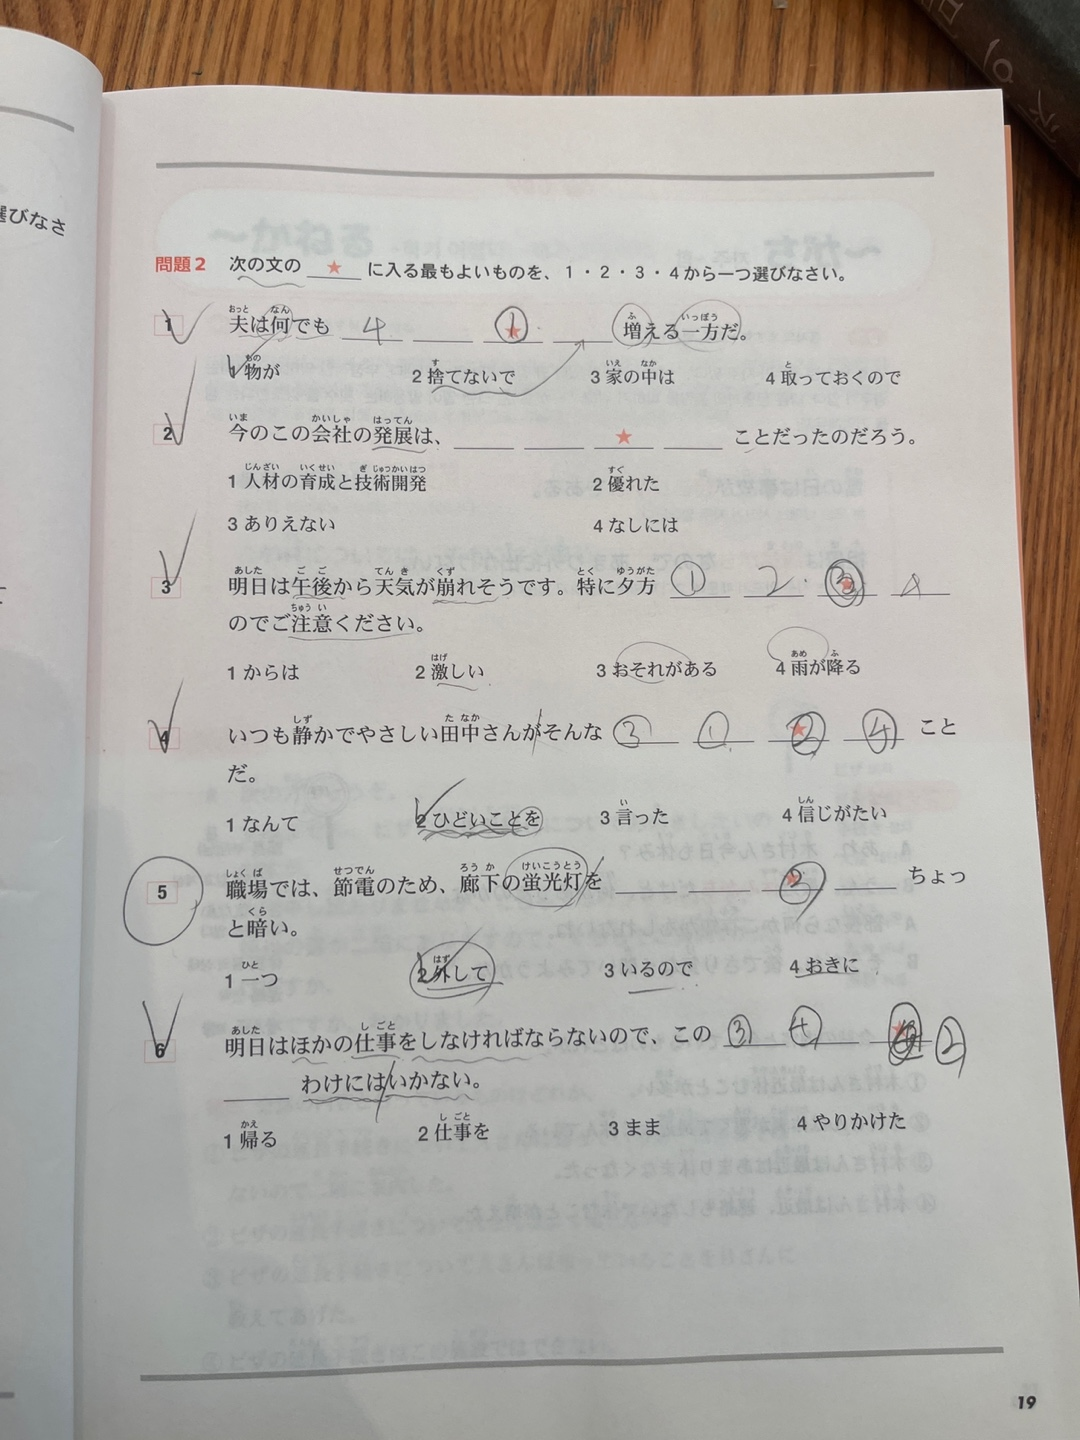 選びなさ
問題2 次の文の ★ に入る最もよいものを、1・2・3・4から一つ選びなさい。
1 夫は何でも 4 ① ★ 増える一方だ。
1 物が 2 捨てないで 3 家の中は 4 取っておくので
2 今のこの会社の発展は、 ★ ことだったのだろう。
1 人材の育成と技術開発 2 優れた
3 ありえない 4 なしには
3 明日は午後から天気が崩れそうです。特に夕方 ① 2 ③ ★ 4
のでご注意ください。
1 からは 2 激しい 3 おそれがある 4 雨が降る
4 いつも静かでやさしい田中さんがそんな ③ ① ② ★ ④ こと
だ。
1 なんて 2 ひどいことを 3 言った 4 信じがたい
5 職場では、節電のため、廊下の蛍光灯を ★ ② ちょっ
と暗い。
1 一つ 2 外して 3 いるので 4 おきに
6 明日はほかの仕事をしなければならないので、この ③ ④ ★ ②
わけにはいかない。
1 帰る 2 仕事を 3 まま 4 やりかけた
19